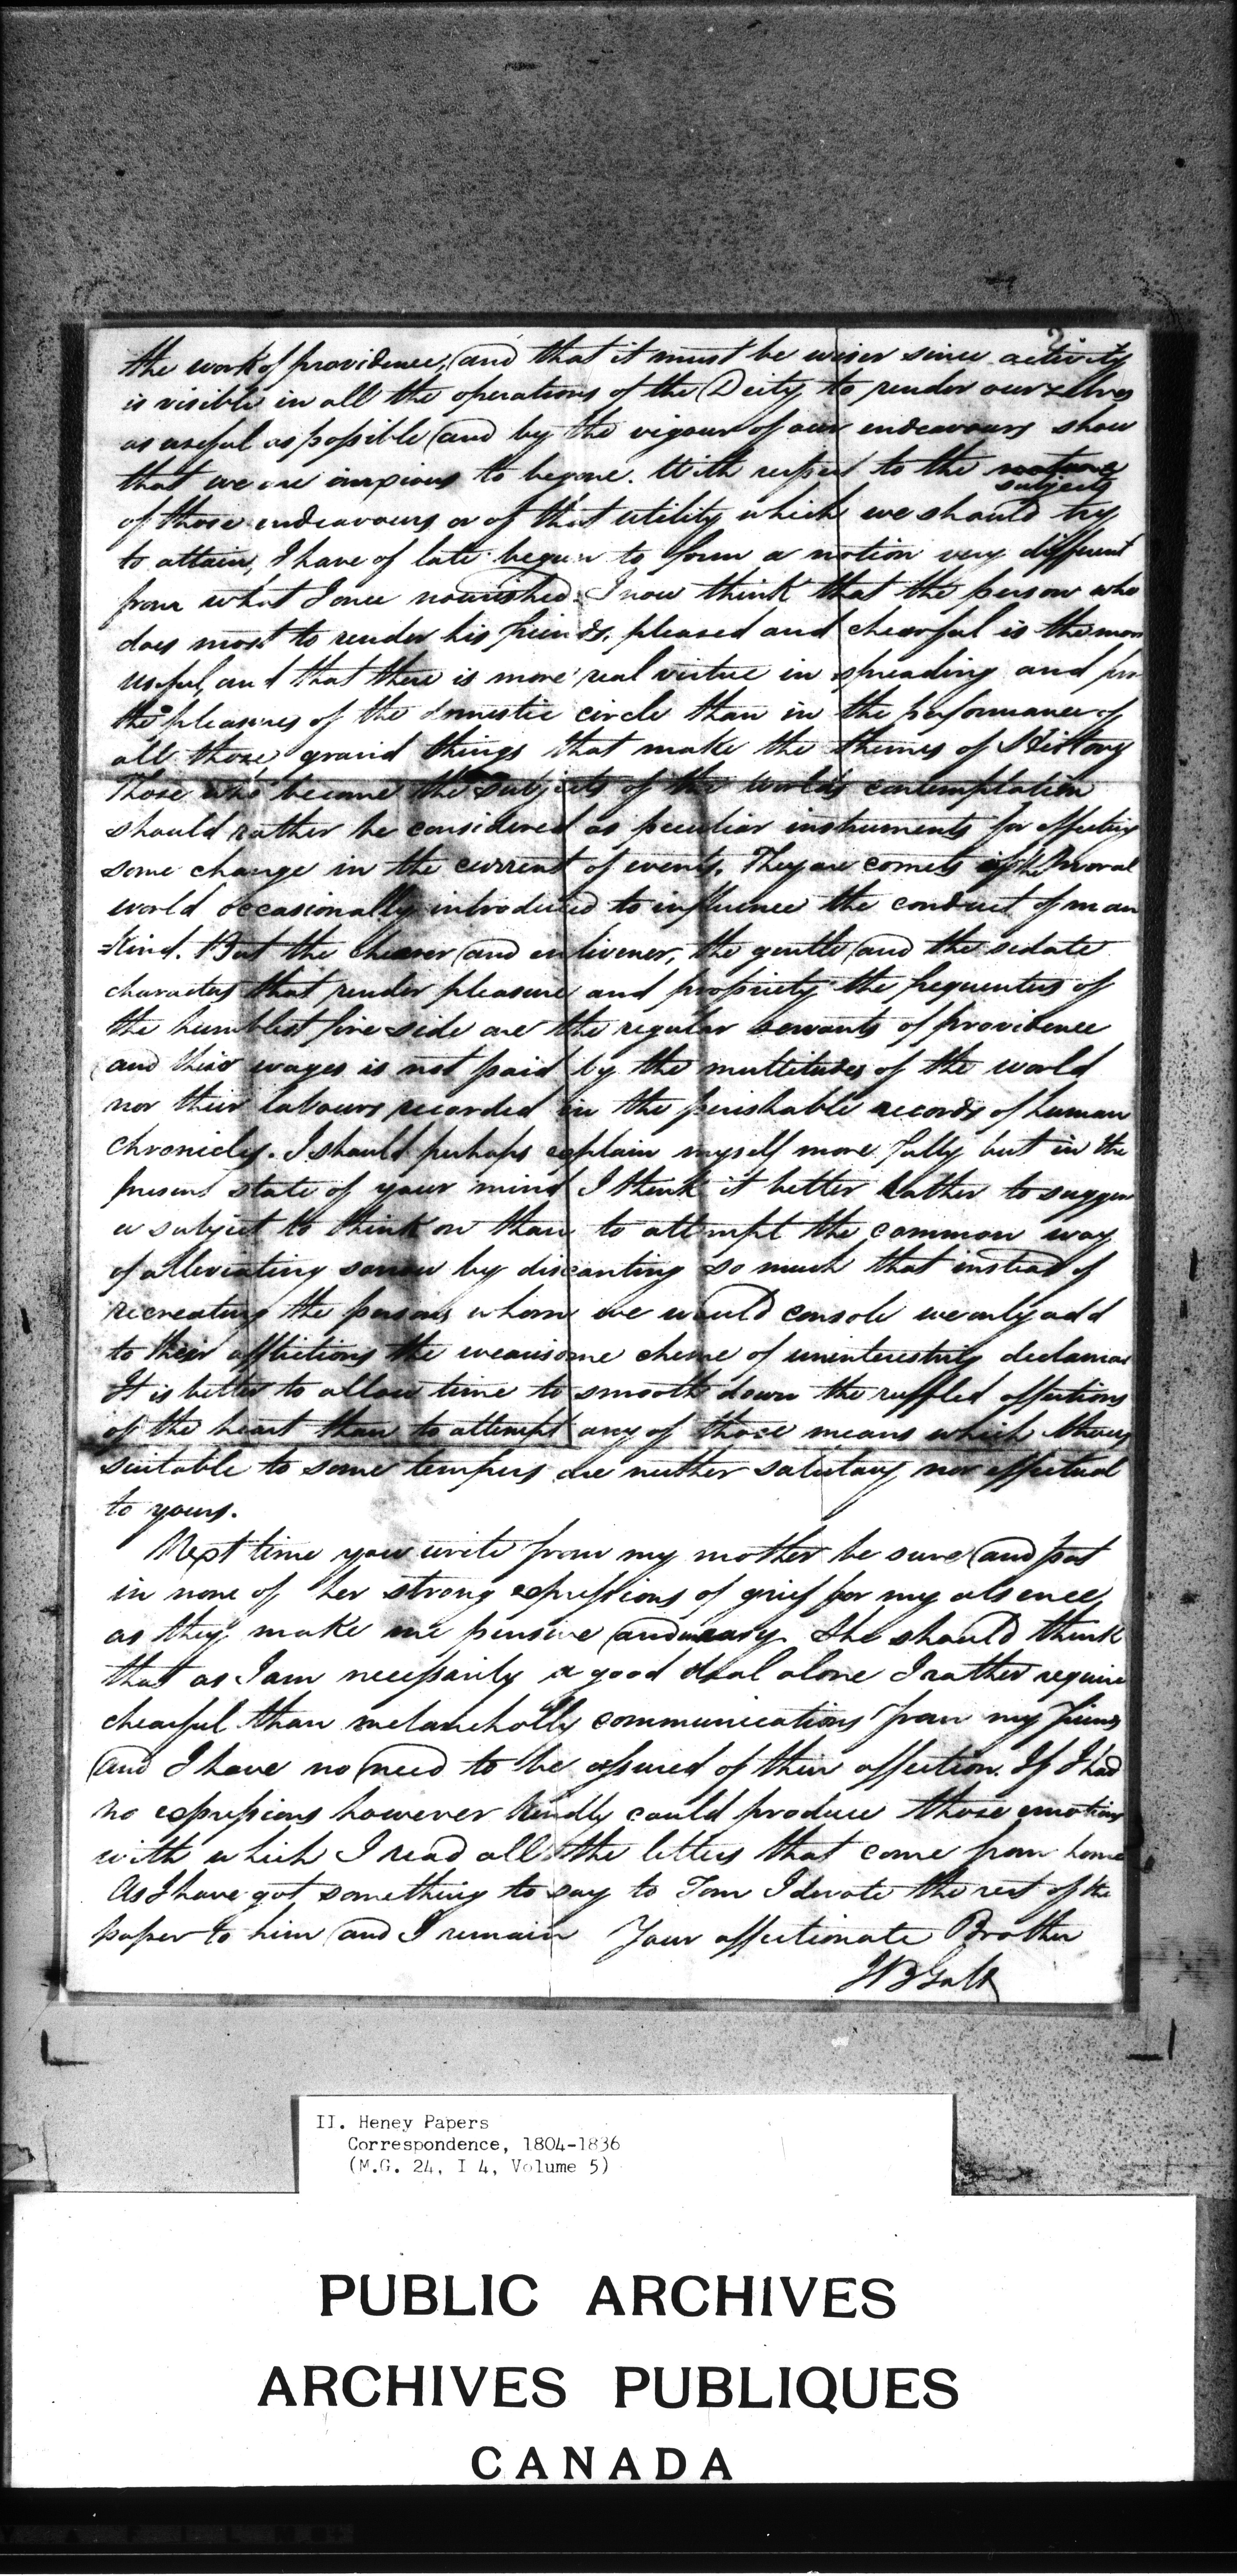 2
the work of providence, and that it must be wiser since activity
is visible in all the operations of the Deity to render ourselves
as useful as possible and by the vigour of our endeavours show
that we are anxious to be more. With respect to the nature
subjects
of those endeavours or of that utility which we should try
to attain, I have of late begun to form a notion very different
from what I once nourished. I now think that the person who
does most to render his friends, pleased and chearful is the mor
useful, and that there is more real virtue in spreading and
the pleasures of the domestic circle than in the performance of
all those grand things that make the themes of History
Those who become the subjects of the world's contemplation
should rather be considered as peculiar instruments for effecting
some change in the current of events. They are comets of the moral
world occasionally introduced to influence the conduct of man
=kind. But the chearer and enlivener, the gentle and the sedate
characters that render pleasure and propriety the frequenters of
the humblest fire side are the regular servants of providence
and their wages is not paid by the multitudes of the world
nor their labours recorded in the perishable records of human
chronicles. I should perhaps explain myself more fully but in the
present state of your mind I think it better rather to sugges
a subject to think on than to attempt the common way
of alleviating sorrow by discanting so much that instead of
recreating the persons whom we would console we only add
to their afflictions the wearisome cheme of uninteresting declama
It is better to allow time to smooth down the ruffled affections
of the heart than to attempt any of those means which thoug
suitable to some tempers are neither salutary nor effectual
to yours.
Next time you write from my mother be sure and put
in none of her strong expressions of grief for my absence
as they make me pensive and uneasy. She should think
that as I am necessarily a good deal alone I rather require
chearful than melancholly communications from my friends
and I have no need to be assured of their affection. If I had
no expressions however kindly could produce those emotions
with which I read all the letters that come from home
As I have got something to say to Tom I devote the rest of the
paper to him and I remain Your affectionate Brother
Galt
II. Heney Papers
Correspondence, 1804-1836
(M.G. 24, I 4, Volume 5)
PUBLIC ARCHIVES
ARCHIVES PUBLIQUES
CANADA